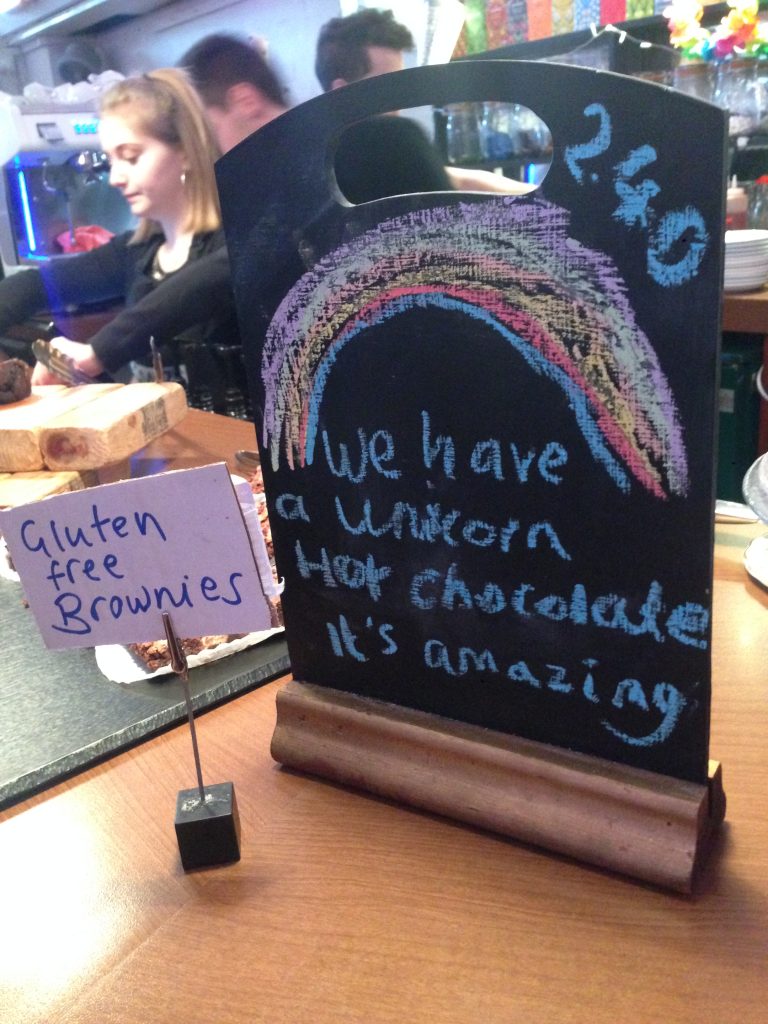 2.40
We have
a Unicorn
Hot chocolate
It's amazing
Gluten
free
Brownies